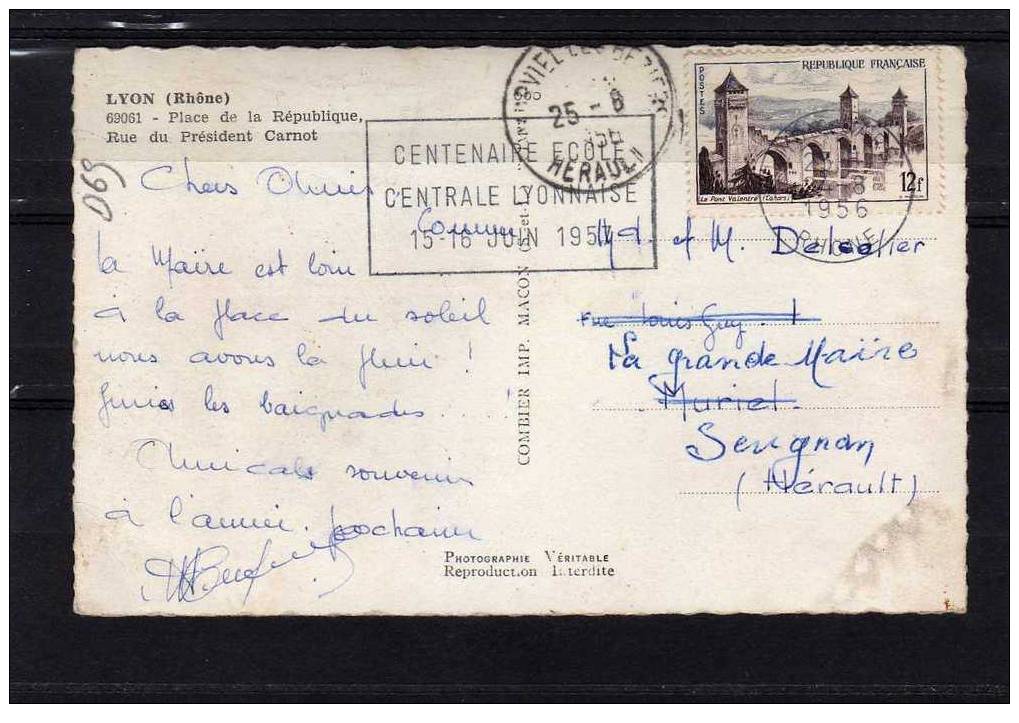 LYON (Rhône)
69061 - Place de la République,
Rue du Président Carnot
D69
Chers Amis
Comme
la Maïre est loin
à la place du soleil
nous avons la pluie !
finies les baignades . . . !
Amicals souvenir
à l'année prochaine
COMBIER IMP. MACON
PHOTOGRAPHIE VÉRITABLE
Reproduction Interdite
25 - 8
HÉRAULT
CENTENAIRE ECOLE
CENTRALE LYONNAISE
15-16 JUIN 1957
POSTES
REPUBLIQUE FRANÇAISE
Le Pont Valentré (Cahors)
12f
1956
RHONE
et M.
rue Louis Guy. 1
La grande Maïre
Muriel.
Serignan
(Hérault)